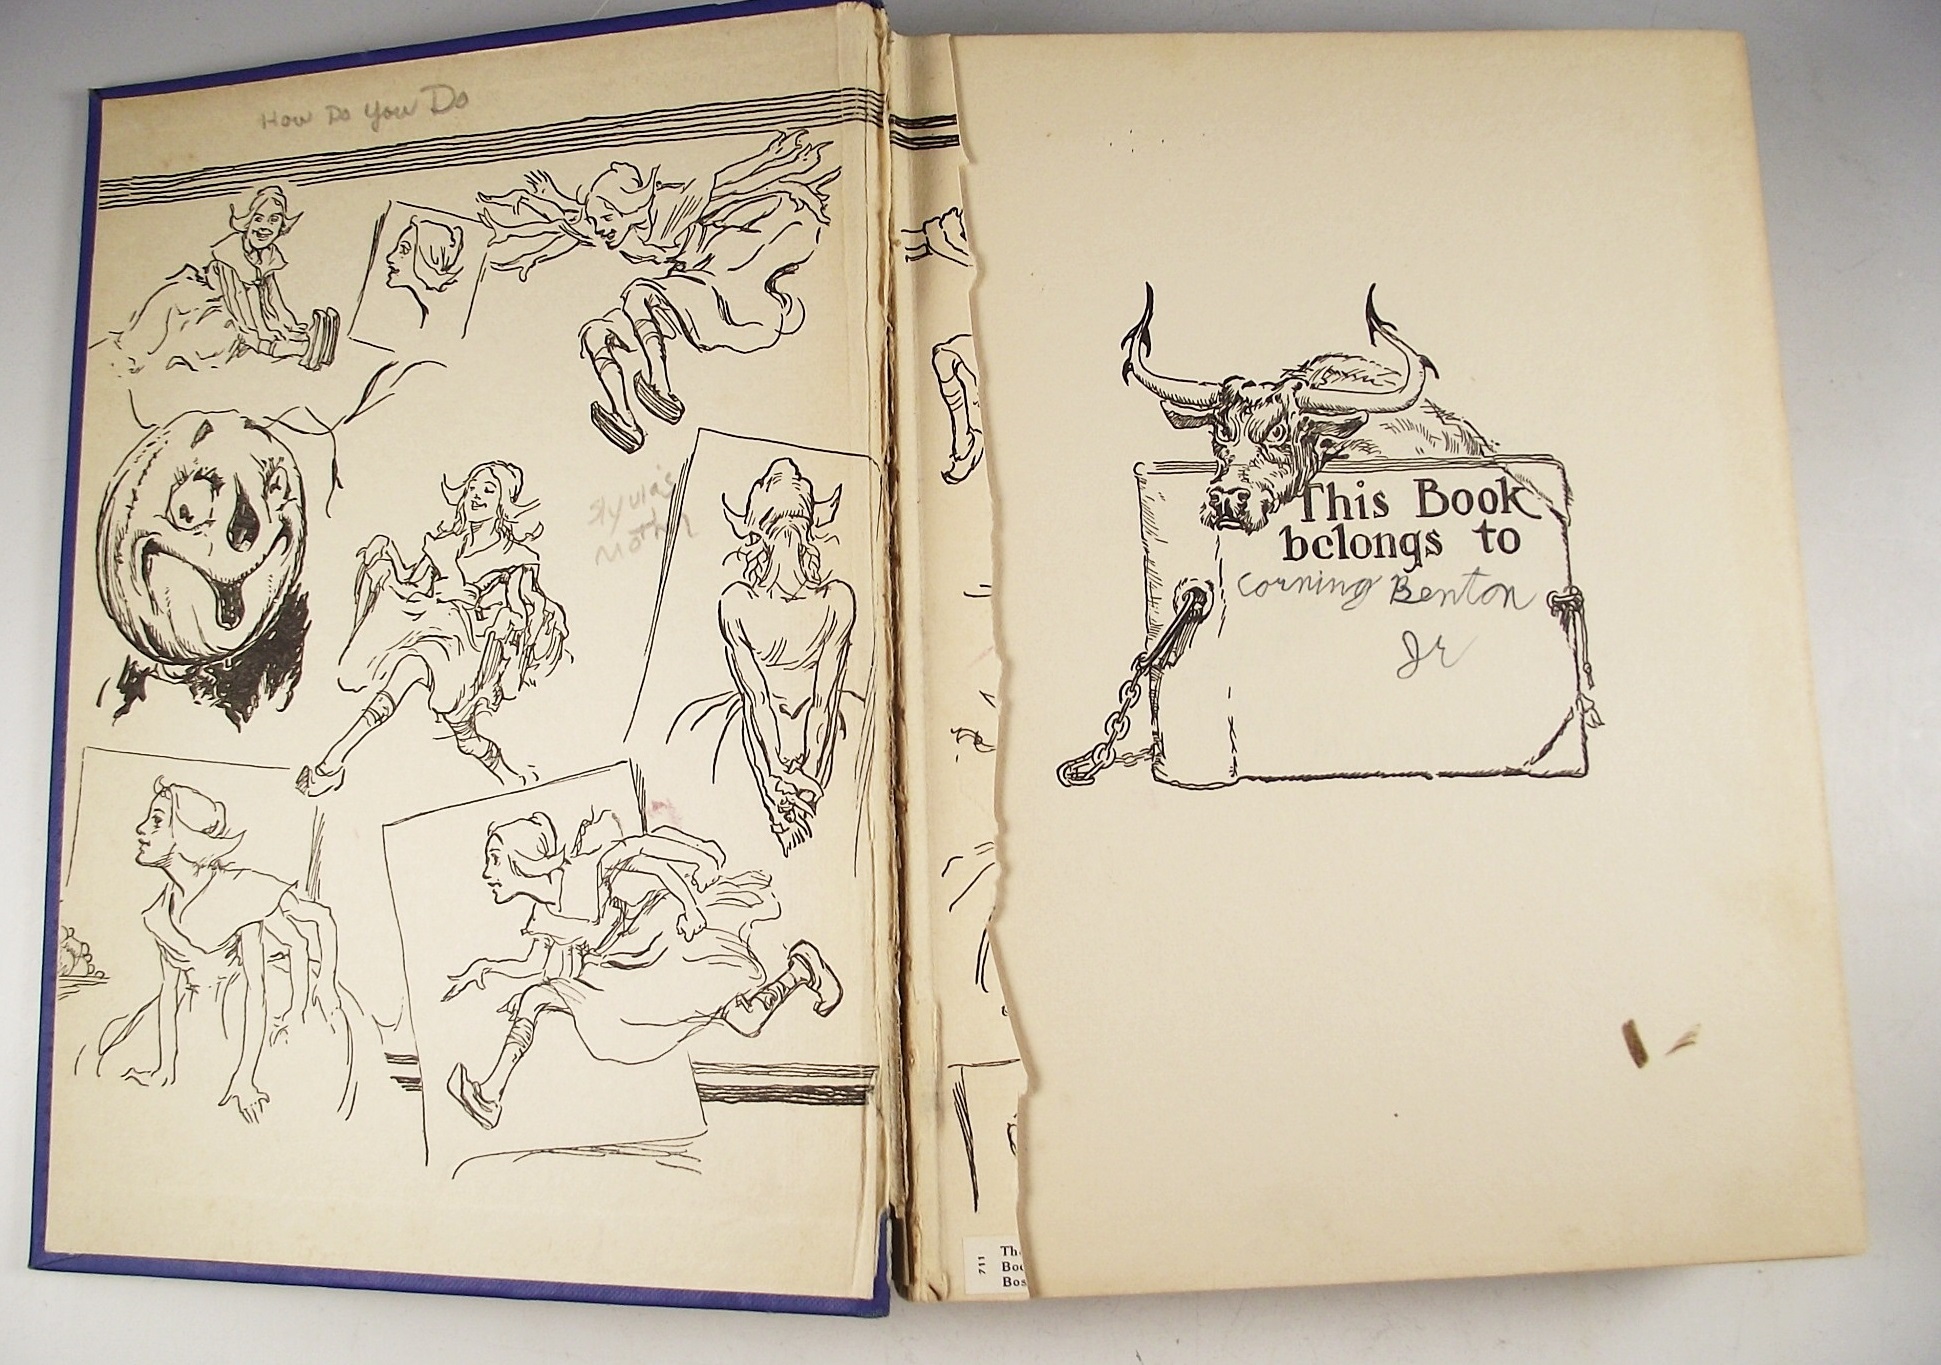 How Do You Do
Sylvia's
Mother
This Book
belongs to
Corning Benton
Jr
711
Th
Boo
Bos